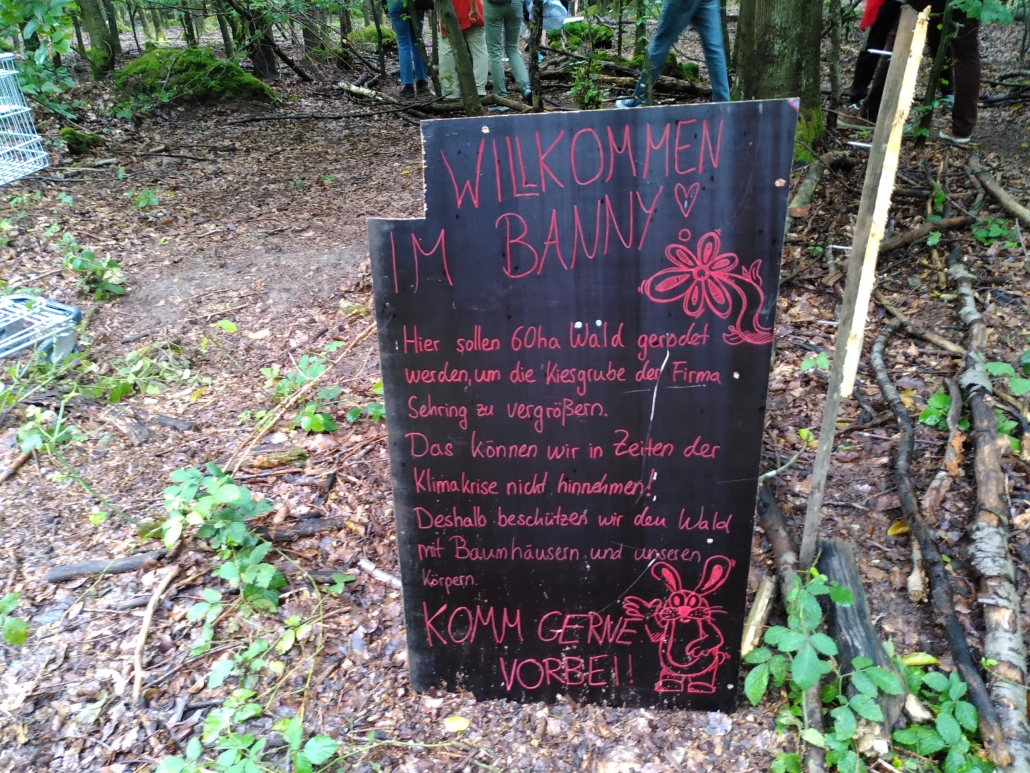 WILLKOMMEN
IM BANNY
Hier sollen 60ha Wald gerodet
werden, um die Kiesgrube der Firma
Sehring zu vergrößern.
Das können wir in Zeiten der
Klimakrise nicht hinnehmen!
Deshalb beschützen wir den Wald
mit Baumhäusern und unseren
Körpern.
KOMM GERNE
VORBEI!